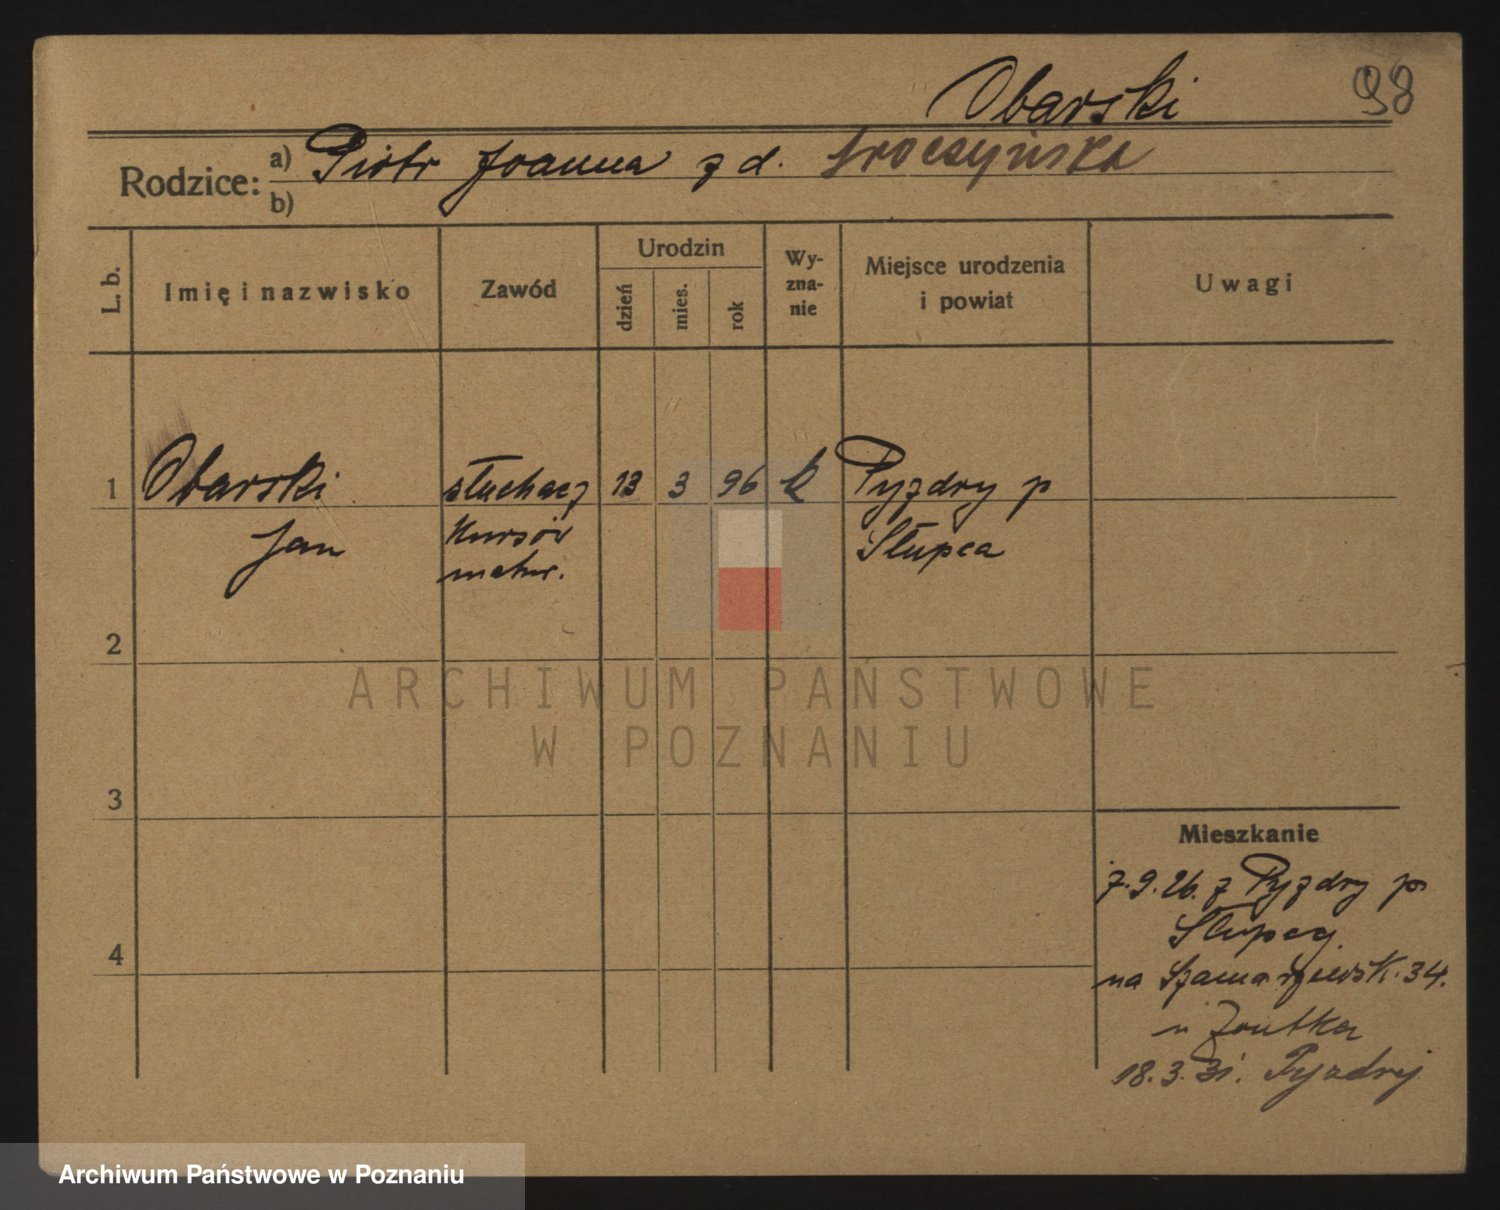 Obarski 98
Rodzice: a) Piotr Joanna z d. Sroczyńska
b)
L. b. Imię i nazwisko Zawód Urodzin dzień mies. rok Wy-zna-nie Miejsce urodzenia i powiat Uwagi
1 Obarski słuchacz 13 3 96 k Pyzdry p
Jan Kursów Słupca
matur.
2
3
4
Mieszkanie
7.9.26. z Pyzdry p
Słupcy.
na Szamarzewsk. 34.
u
18.3.31. Pyzdry
ARCHIWUM PAŃSTWOWE
W POZNANIU
Archiwum Państwowe w Poznaniu